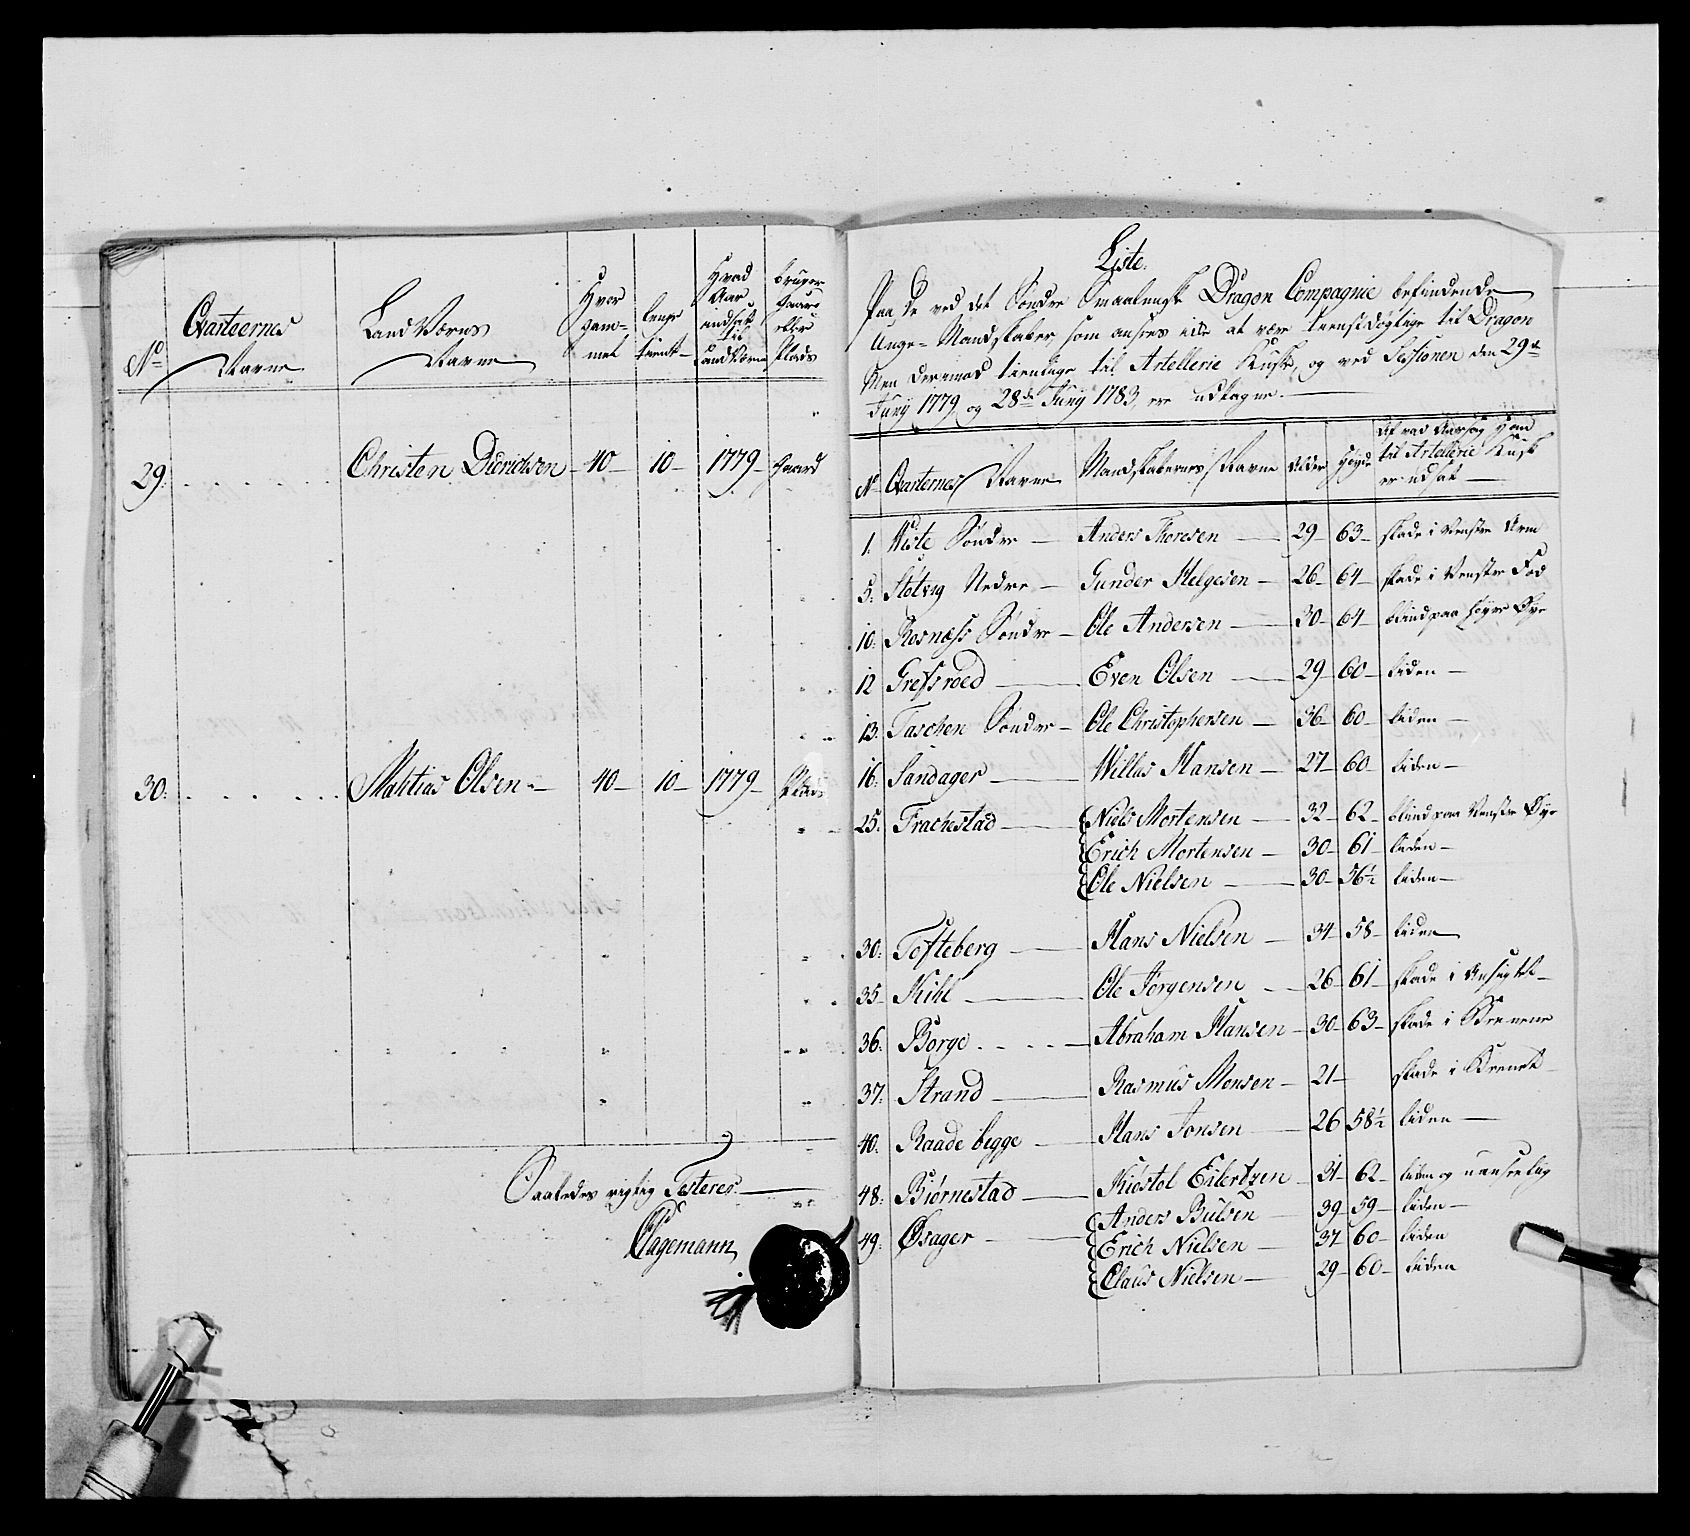 No
Qvarteernes Navne
Land Værns Navne
Hvor gam= mel
lenge tient
Hvad Aar indsat til Land Værne
bruger Gaard eller Plads
29. Christen Diericksen 40 10 1779 Gaard
30. Mathias Olsen 40 10 1779 Plads
Saaledes rigtig Testeres
Hagemann
Liste
Paa de ved det Søndre Smaalenske Dragon Compagnie befindende
Unge Mandskaber, som ansees icke at være tienstdøgtige til Dragon
Men derimod tienlige til Artellerie Kuske, og ved Sessionen den 29de
Juny 1779 og 28de Juny 1783 ere udtagne.
No Qvarternes Navne Mandskabernes Navne Alder Høyde Af vad Aarsag Hand
til Artellerie Kusk
er udsat
1. Viste Søndre Anders Thoresen 29 63 skade i Venstre Arm
5. Slotvig Nedre Gunder Helgesen 26 64 skade i Venstre Fod
10. Rosnæss Søndre Ole Andersen 30 64 blind paa høyre Øye
12 Grefsroed Even Olsen 29 60 liden
13. Taschen Søndre Ole Christophersen 36 60 liden
16. Sandager Willas Hansen 27 60 liden
25. Frachestad Niels Mortensen 32 62 blind paa Venstre Øye
Erich Mortensen 30 61 liden
Ole Nielsen 30 56½ liden
30. Tofteberg Hans Nielsen 34 58 liden
35 Kihl Ole Jørgensen 26 61 skade i Ansigtet
36. Borge Abraham Hansen 30 63 skade i Benene
37. Strand Rasmus Monsen 21 skade i Benet
40. Raade begge Hans Jonsen 26 58½ liden
48. Biørnestad Kiøstol Eilertzen 31 62 liden og uanseelig
49. Øsager Anders Bulsen 39 59 liden
Erich Nielsen 37 60 liden
Claus Nielsen 29 60 liden